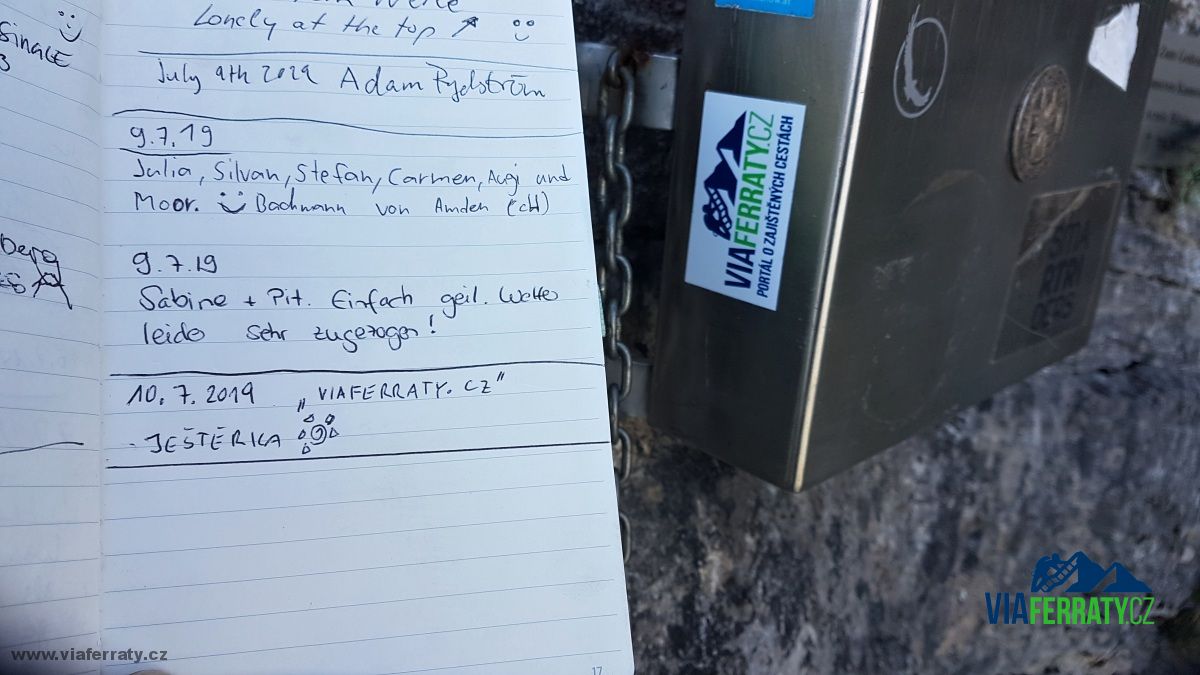 Lonely at the top
SINGLE
July 9th 2019 Adam Rydström
9.7.19
Julia, Silvan, Stefan, Carmen, und
Moor. Bachmann von Amden (CH)
9.7.19
Sabine + Pit. Einfach geil. Wetter
leider sehr zugezogen!
10.7.2019 „VIAFERRATY.CZ"
- JEŠTĚRKA
17
VIAFERRATY.CZ
PORTÁL O ZAJIŠTĚNÝCH CESTÁCH
VIAFERRATY.CZ
www.viaferraty.cz